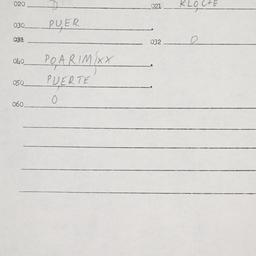 020 D 021 KLOCTE
030 PUER
031
032 O
040 POARIMIXX
050 PUERTE
060 O